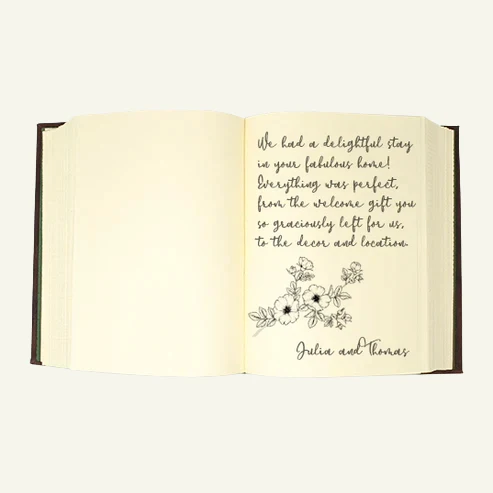 We had a delightful stay
in your fabulous home!
Everything was perfect,
from the welcome gift you
so graciously left for us,
to the decor and location.
Julia and Thomas